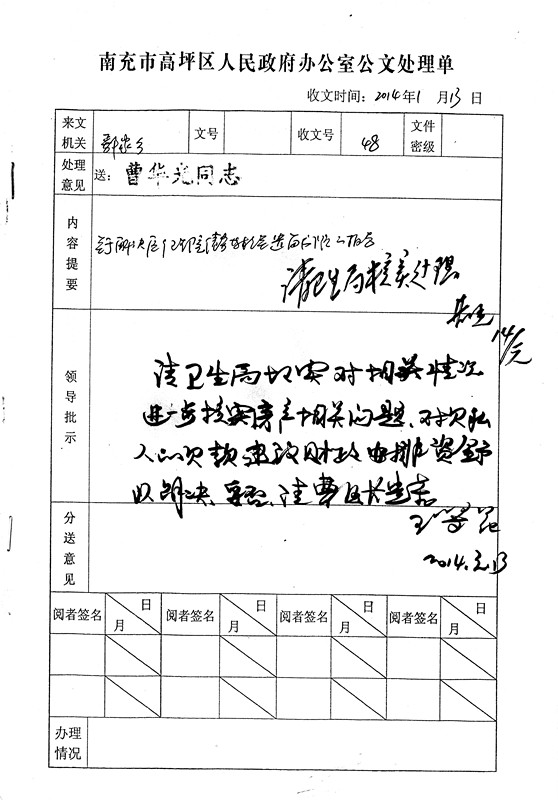 南充市高坪区人民政府办公室公文处理单
收文时间：2014年1月13日
来文机关
文号
收文号 48
文件密级
处理意见
送：曹华光同志
内容提要
请卫生局核实处理
14/元
领导批示
请卫生局切实对相关情况
进一步核实清产相关问题、对欠私
人的欠款建议财政安排资金予
以解决。妥否，请曹区长告示
2014.元.13
分送意见
阅者签名 月 日 阅者签名 月 日 阅者签名 月 日 阅者签名 月 日
办理情况